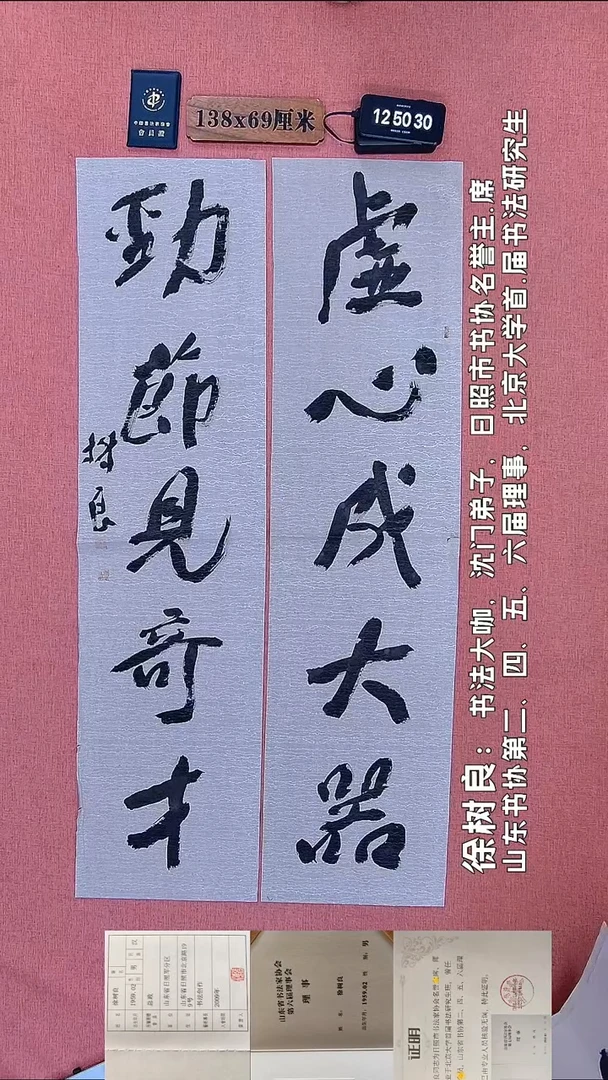 中国书法家协会
會員證
138x69厘米
12 50 30
虚心成大器
勁節見奇才
樹良
徐树良：书法大咖，沈门弟子，日照市书协名誉主.席
山东书协第二、四、五、六届理事，北京大学首.届书法研究生
徐树良
1959.02
男
汉
书法创作
2009年
山东省书法家协会
第六届理事会
理事
徐树良
1959.02
男
证明